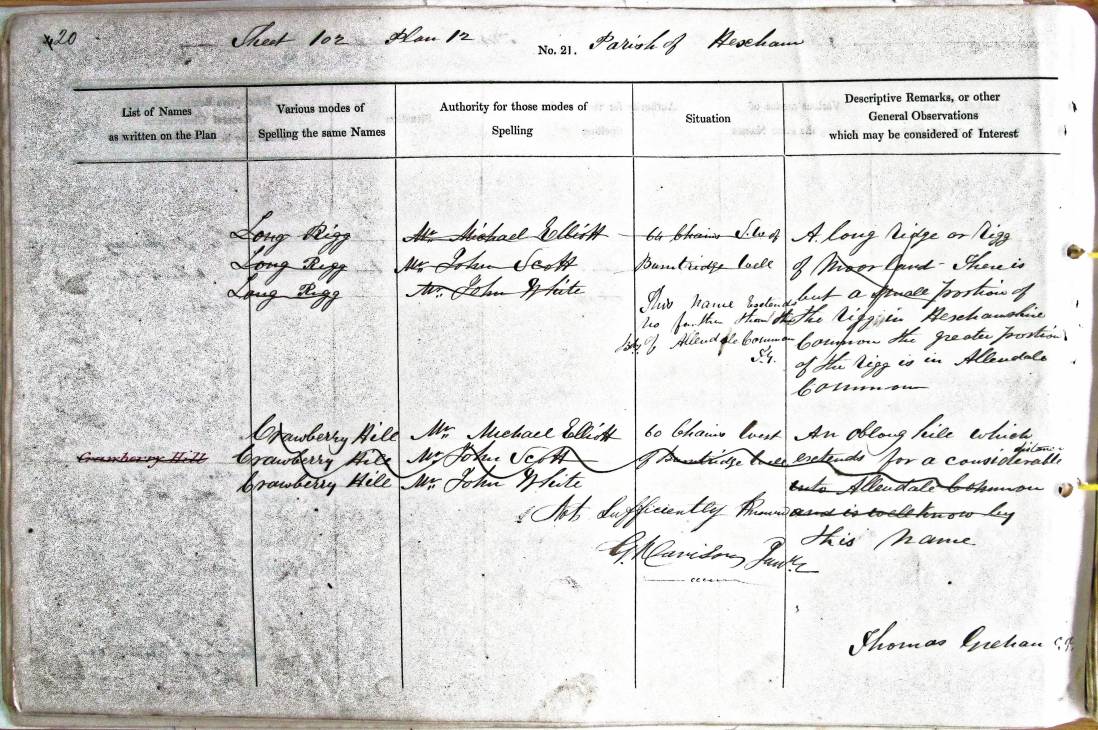 20
Sheet 102 Plan 12
No. 21. Parish of Hexham
List of Names
as written on the Plan
Various modes of
Spelling the same Names
Authority for those modes of
Spelling
Situation
Descriptive Remarks, or other
General Observations
which may be considered of Interest
Long Rigg
Long Rigg
Long Rigg
Mr. Michael Elliott
Mr. John Scott
Mr. John White
64 Chains S.W of
Burntridge Well
This name Extends
no further than the
Bdy of Allendale Common
T.G.
A long ridge or rigg
of Moorland - There is
but a small portion of
the rigg in Hexhamshire
Common the greater portion
of the rigg is in Allendale
Common
Crawberry Hill
Crawberry Hill
Crawberry Hill
Crawberry Hill
Mr. Michael Elliott
Mr. John Scott
Mr. John White
60 Chains West
of Burntridge Well
An oblong hill which
extends for a considerable distance
into Allendale Common
and is well know by
this name
Not Sufficiently Known
Thomas Grehan